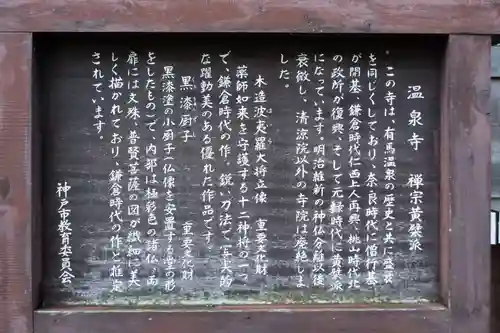 温泉寺 禅宗黄檗派
この寺は、有馬温泉の歴史と共に盛衰
を同じくしており、奈良時代に僧行基
が開基、鎌倉時代仁西上人再興、桃山時代北
の政所が復興、そして元禄時代に黄檗派
になっています。明治維新の神仏分離以後
衰微し、清涼院以外の寺院は廃絶しま
した。
木造波夷羅大将立像 重要文化財
薬師如来を守護する十二神将の一つ
で、鎌倉時代の作。鋭い刀法で写実的
な躍動美のある優れた作品です。
黒漆厨子 重要文化財
黒漆塗の小厨子(仏像を安置する堂の形
をしたもの)で、内部は極彩色の諸仏、両
扉には文殊、普賢菩薩の図が繊細に美
しく描かれており、鎌倉時代の作と推定
されています。
神戸市教育委員会